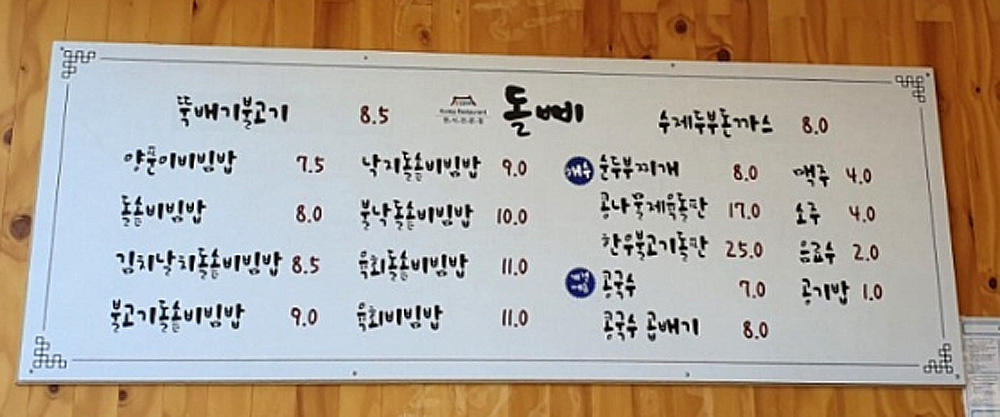 돌삐
뚝배기불고기 8.5
양푼이비빔밥 7.5
돌솥비빔밥 8.0
김치날치돌솥비빔밥 8.5
불고기돌솥비빔밥 9.0
낙지돌솥비빔밥 9.0
불낙돌솥비빔밥 10.0
육회돌솥비빔밥 11.0
육회비빔밥 11.0
수제두부돈까스 8.0
순두부찌개 8.0
콩나물제육돌판 17.0
한우불고기돌판 25.0
콩국수 7.0
콩국수 곱배기 8.0
맥주 4.0
소주 4.0
음료수 2.0
공기밥 1.0